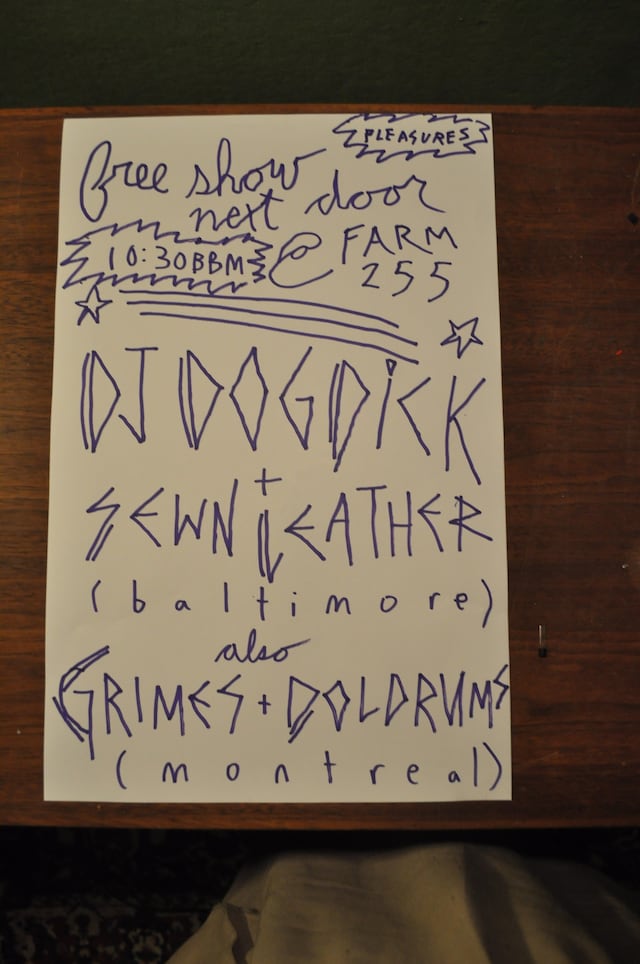 PLEASURES
free show
next door
10:30BBM @ FARM
255
DJ DOGDICK
+
SEWN LEATHER
(baltimore)
also
GRIMES + DOLDRUMS
(montreal)